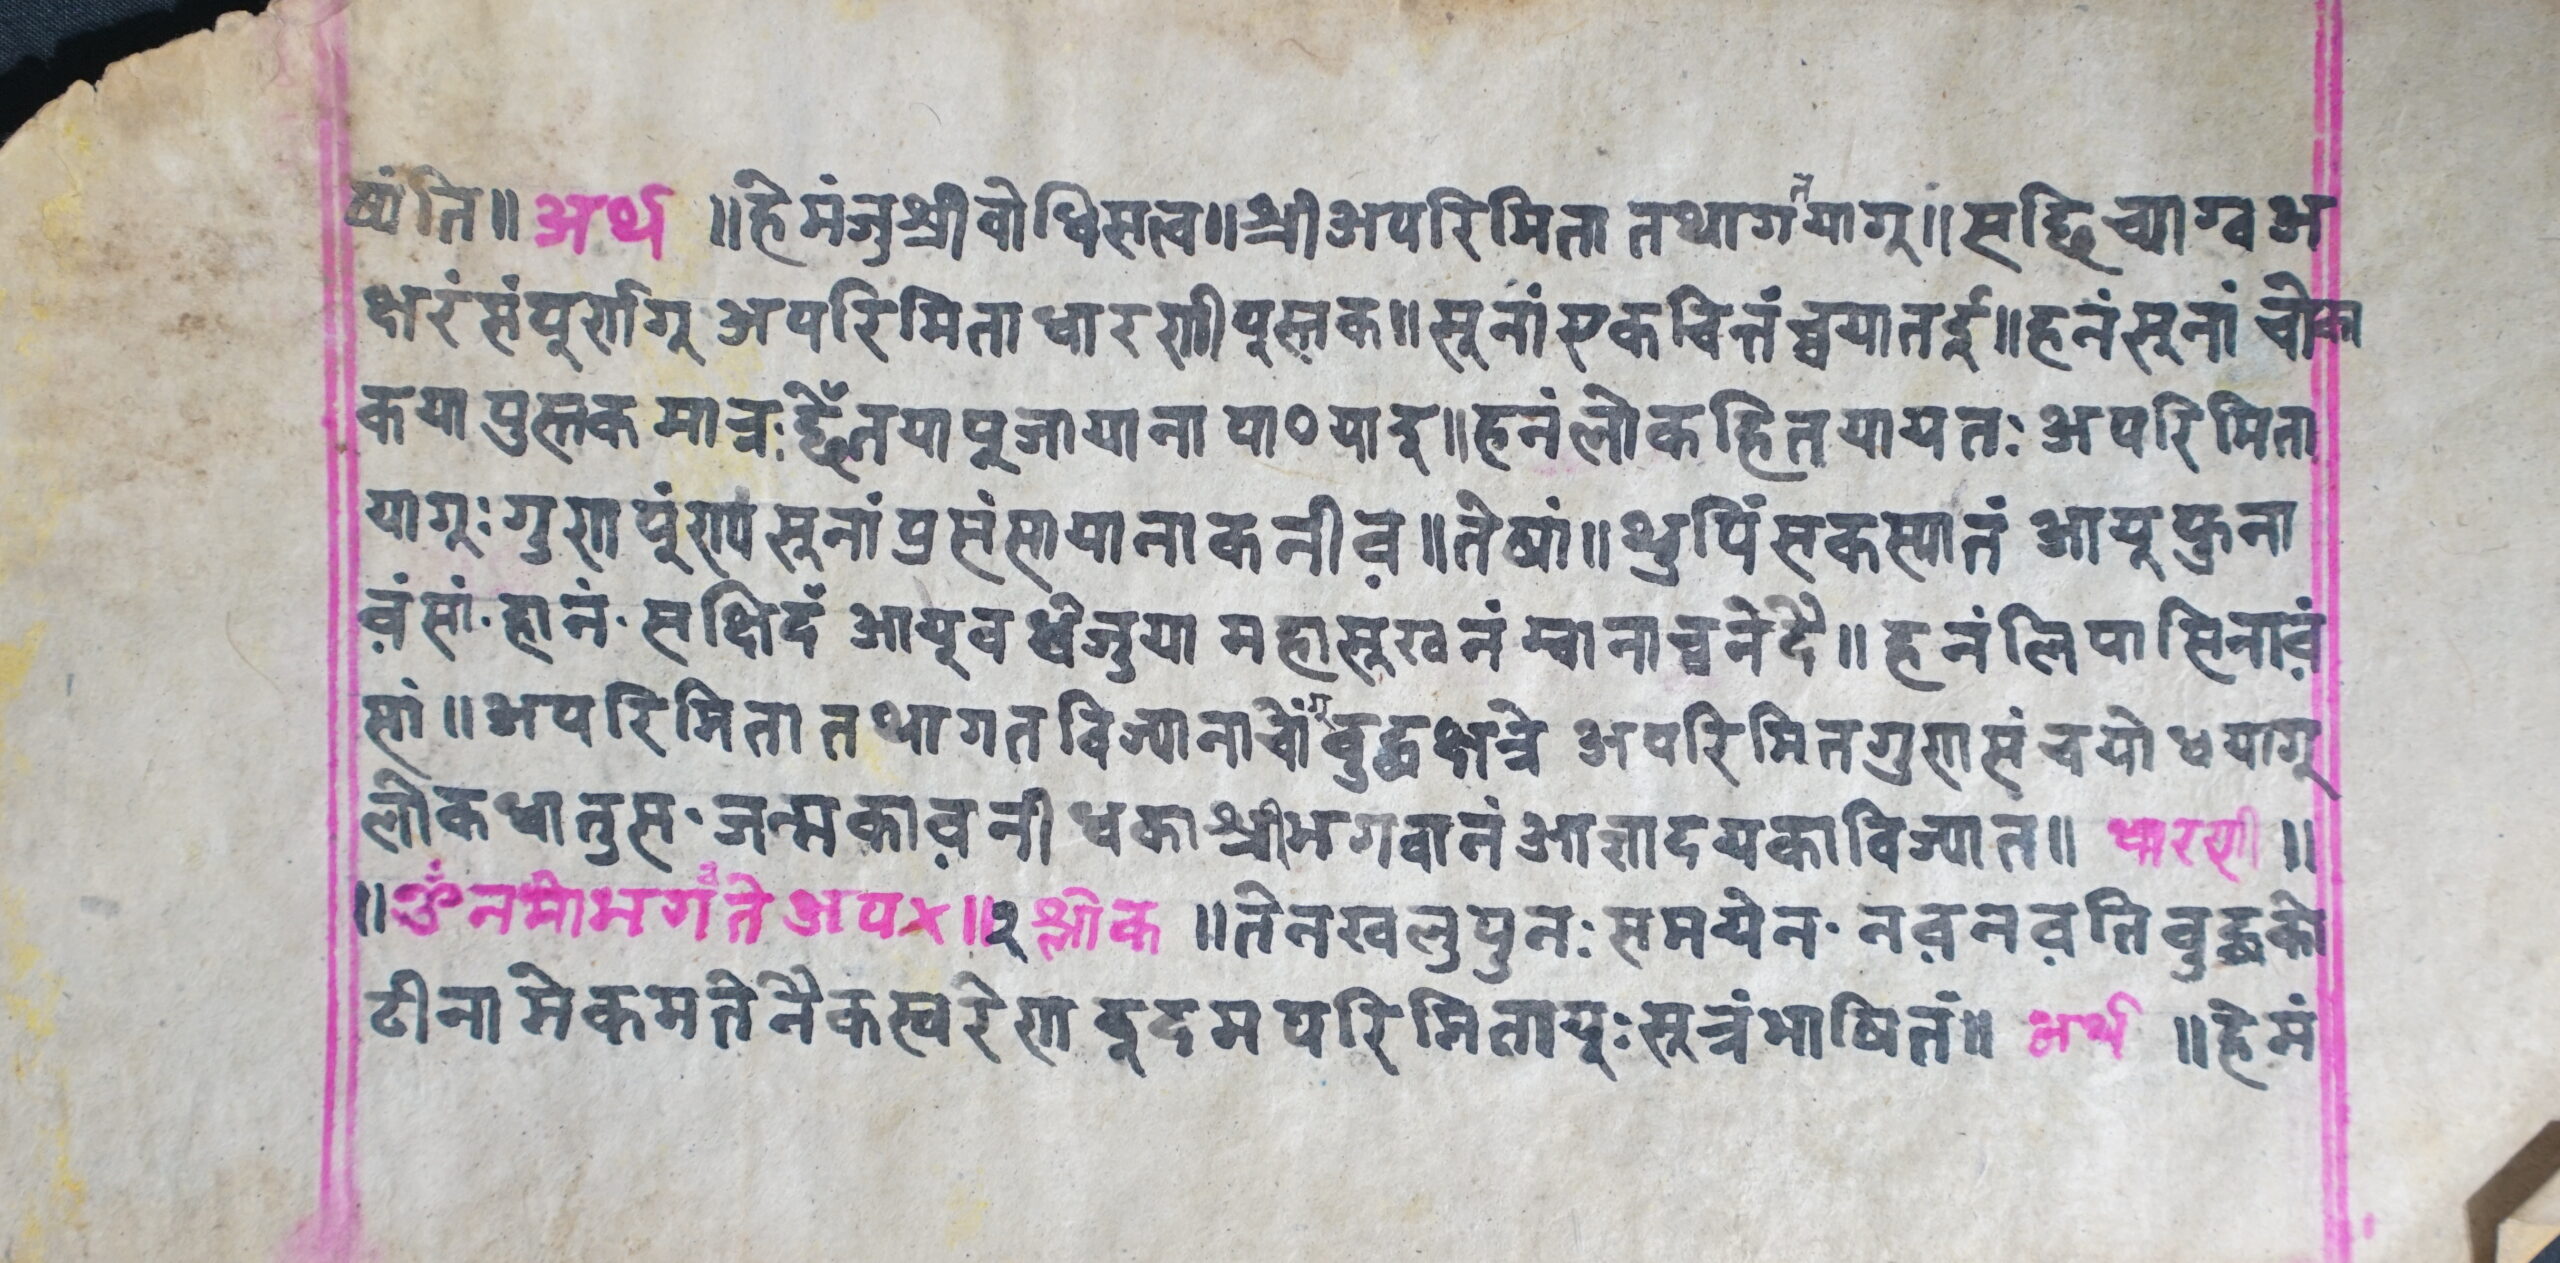 ष्यंति॥ अर्थ ॥हे मंजुश्रीवोधिसत्व॥श्रीअपरिमिता तथागतयागु॥सद्धि च्याग्व अ
क्षरं संपुर्णगु अपरिमिता धारणी पुस्तक॥सुनां एकचित्तं च्वयातई॥हनं सुनां चोका
कया पुस्तक मात्र: छेँ तया पुजायाना पाठ याइ॥हनं लोकहित यायत: अपरिमिता
यागू: गुण पुंराण सुनां प्रसंसायाना कनीव॥तेषां॥थुपिं सकस्यानं आयू फुना
वंसां· हानं· सक्षिदँ आयूवर्धेजुया महासुखनं म्वाना च्वनेदै॥हनं लिपा सिनावं
सां॥अपरिमिता तथागत विज्यानाचोंगु बुद्धक्षत्रे अपरिमितगुण संचयो धयागू
लोकधातुस· जन्मकावनी धका श्रीभगवानं आज्ञादयका विज्यात॥ धारणी ॥
॥ॐ नमो भगवते अप×॥२ श्लोक ॥तेन खलु पुन: समयेन· नवनवति बुद्धको
टीनामेकमतेनैकस्वरेण इदमपरिमितायु: सुत्रं भाषितं॥ अर्थ ॥हे मं